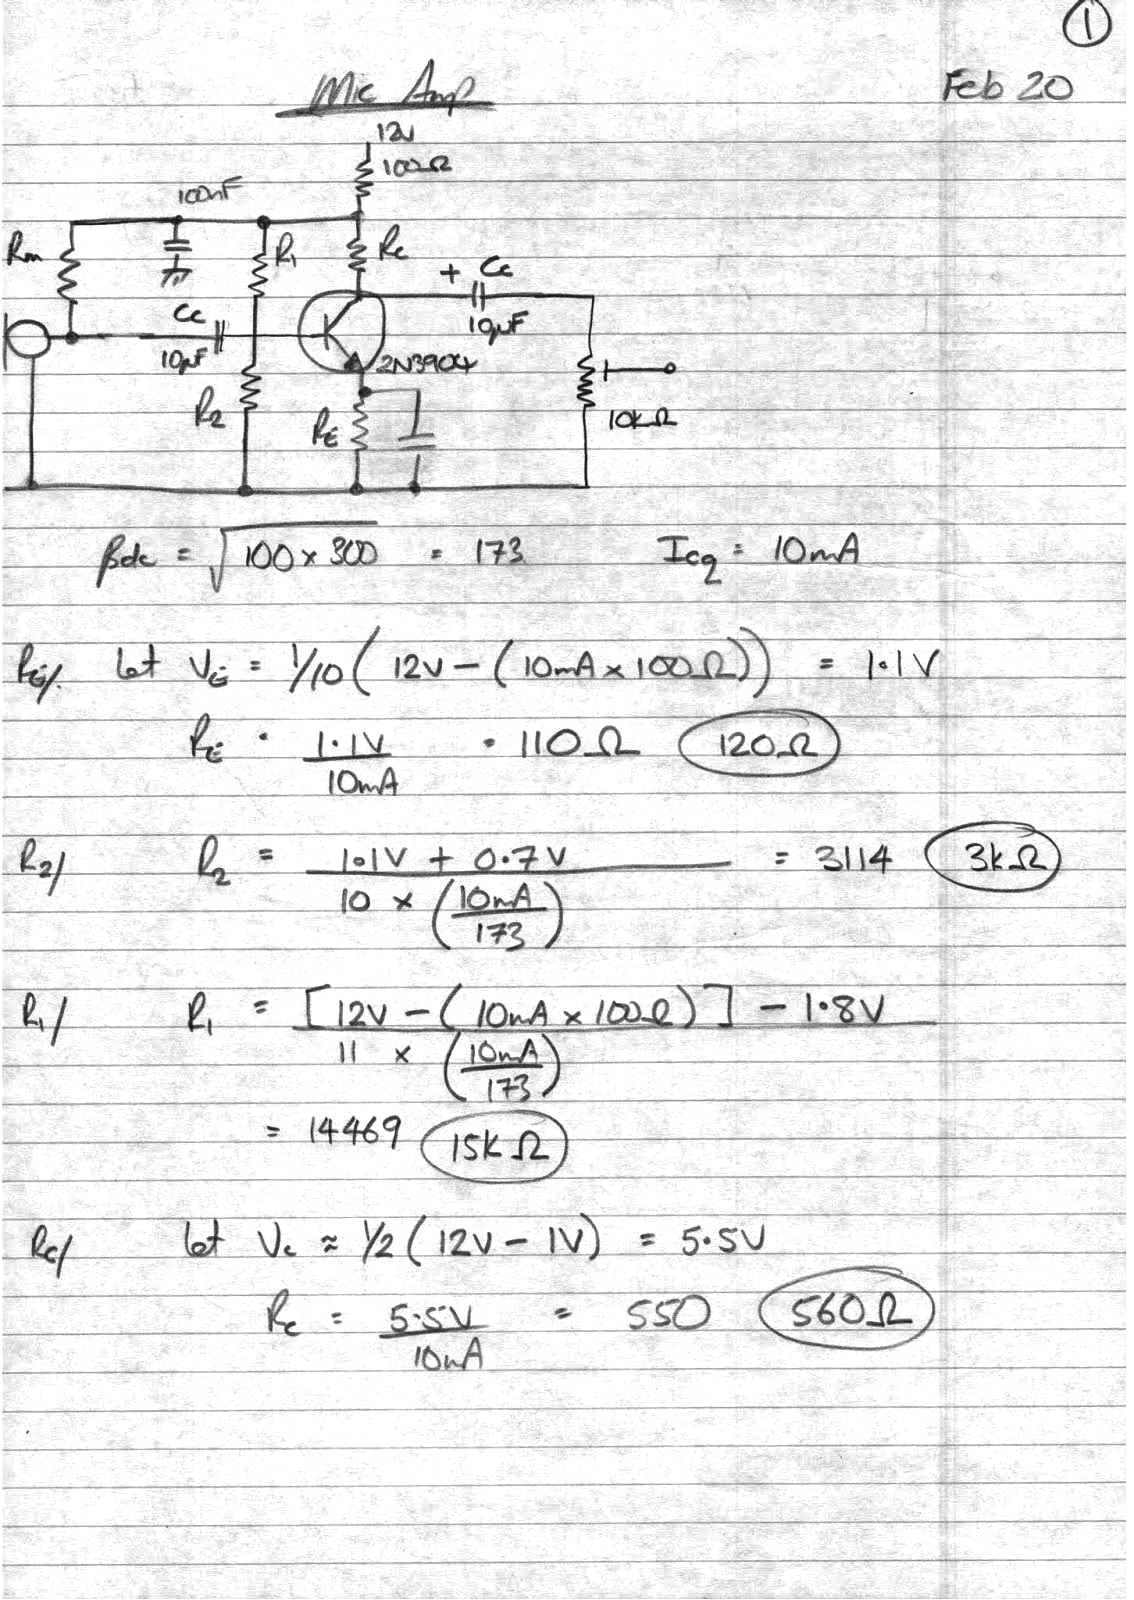 1
Mic Amp
Feb 20
12v
100Ω
100nF
Rm
R1
Rc
+ Cc
Cc
10µF
10µF
2N3904
R2
RE
10kΩ
βdc = √100 x 300 = 173 Icq = 10mA
RE/. Let VE = 1/10 ( 12V - ( 10mA x 100Ω)) = 1.1V
RE = 1.1V / 10mA = 110Ω 120Ω
R2/ R2 = 1.1V + 0.7V / 10 x (10mA / 173) = 3114 3kΩ
R1/ R1 = [12V - ( 10mA x 100Ω)] - 1.8V / 11 x (10mA / 173)
= 14469 15kΩ
Rc/ Let Vc ≈ 1/2 ( 12V - 1V) = 5.5V
Rc = 5.5V / 10mA = 550 560Ω